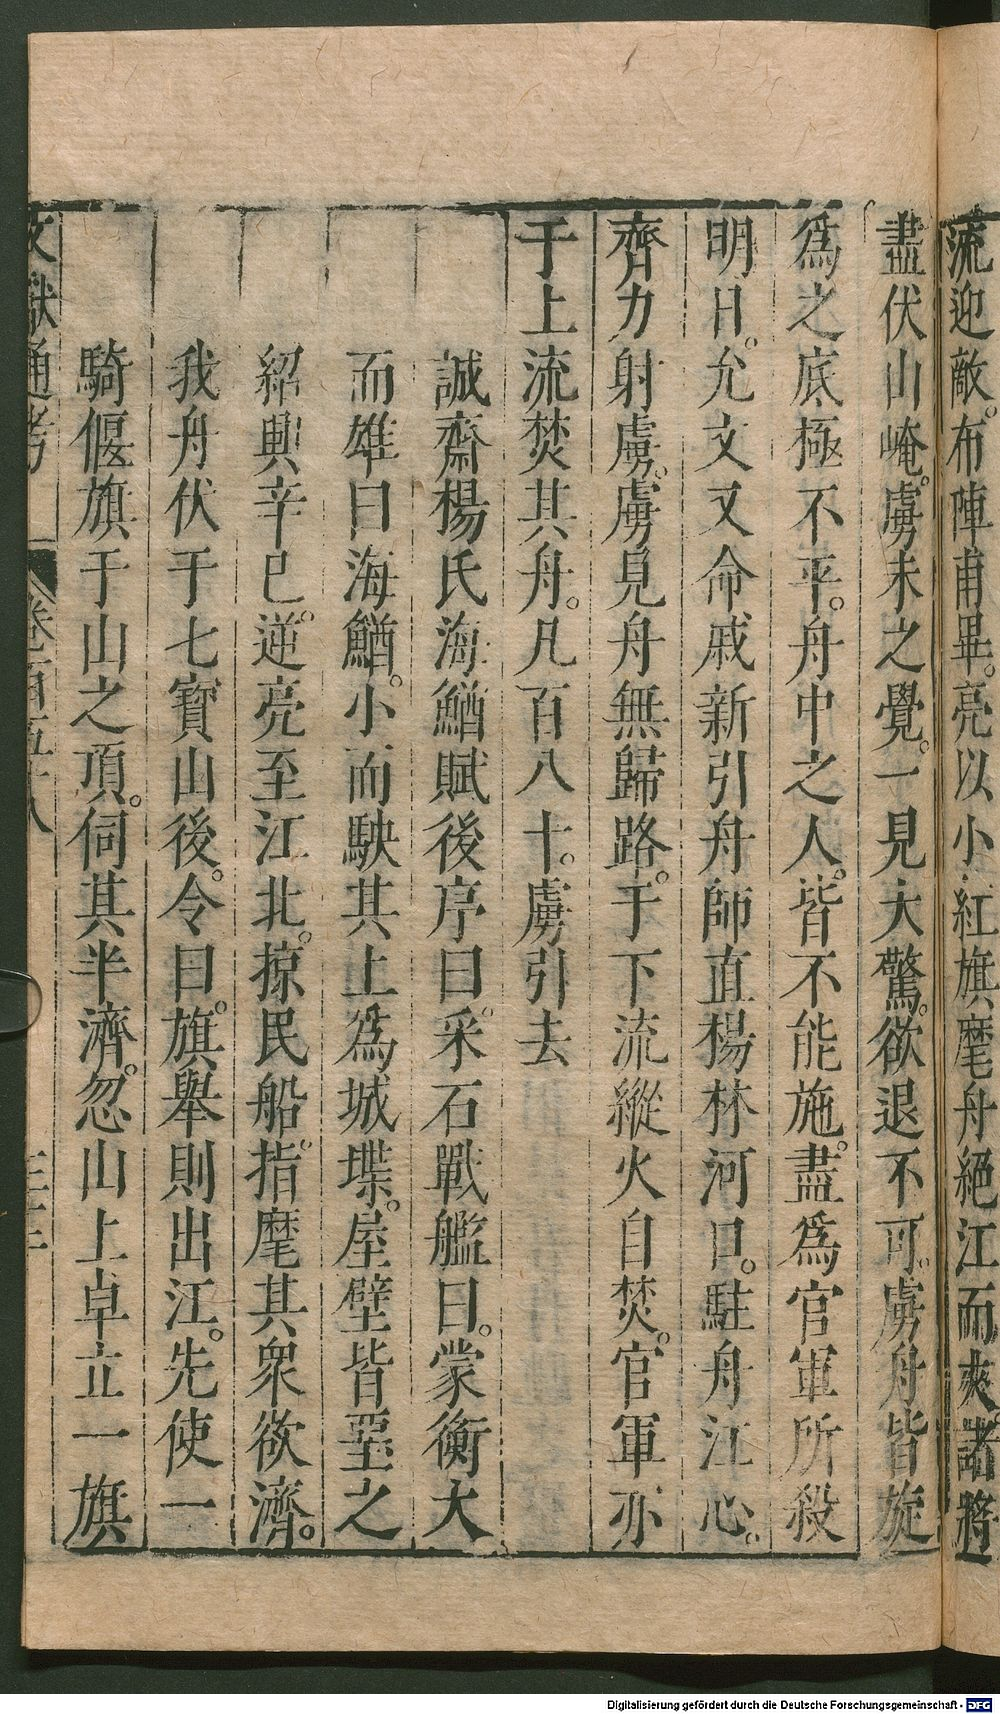 流迎敵。布陣甫畢。亮以小紅旗麾舟絕江而來。諸將
盡伏山崦。虜未之覺。一見大驚。欲退不可。虜舟皆旋
爲之底極不平。舟中之人。皆不能施。盡爲官軍所殺
明日。允文又命戚新引舟師直楊林河口。駐舟江心。
齊力射虜。虜見舟無歸路。于下流縱火自焚。官軍亦
于上流焚其舟。凡百八十。虜引去
誠齋楊氏海鰌賦後序曰。采石戰艦曰。蒙衝大
而雄曰海鰌。小而駛其上爲城堞。屋壁皆堊之
紹興辛巳。逆亮至江北。掠民船。指麾其眾欲濟。
我舟伏于七寶山後。令曰。旗舉則出江。先使一
騎偃旗于山之頂。伺其半濟。忽山上卓立一旗
文獻通考 卷百五十八
Digitalisierung gefördert durch die Deutsche Forschungsgemeinschaft - DFG